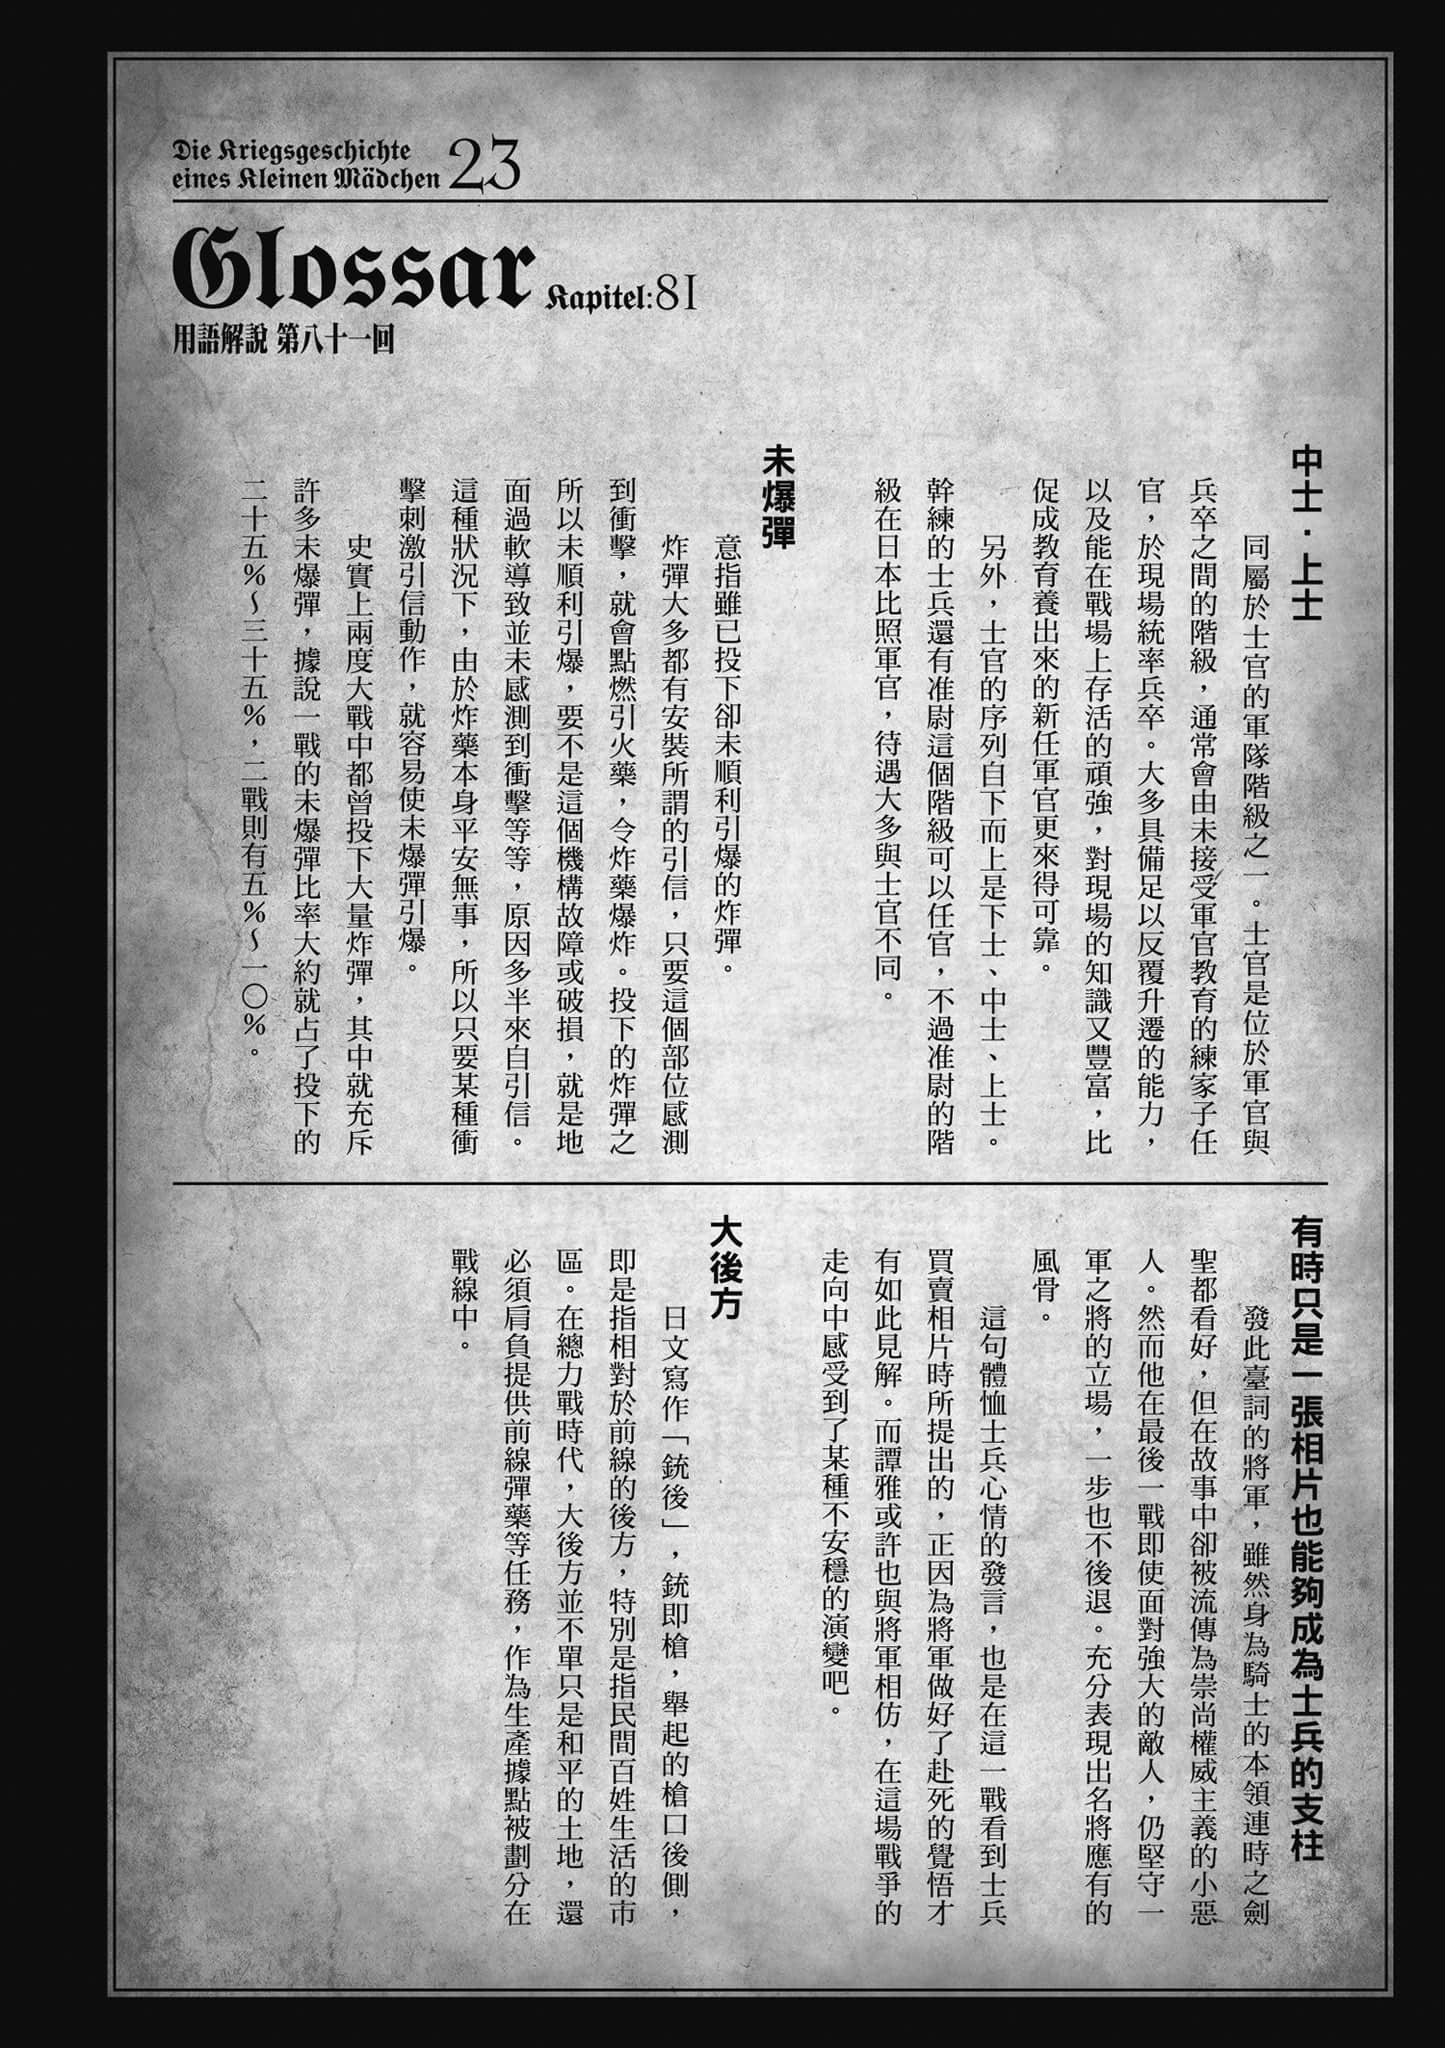 Die Kriegsgeschichte
eines Kleinen Mädchen 23
Glossar Kapitel:81
用語解說 第八十一回
中士．上士
同屬於士官的軍隊階級之一。士官是位於軍官與
兵卒之間的階級，通常會由未接受軍官教育的練家子任
官，於現場統率兵卒。大多具備足以反覆升遷的能力，
以及能在戰場上存活的頑強，對現場的知識又豐富，比
促成教育養出來的新任軍官更來得可靠。
另外，士官的序列自下而上是下士、中士、上士。
幹練的士兵還有准尉這個階級可以任官，不過准尉的階
級在日本比照軍官，待遇大多與士官不同。
未爆彈
意指雖已投下卻未順利引爆的炸彈。
炸彈大多都有安裝所謂的引信，只要這個部位感測
到衝擊，就會點燃引火藥，令炸藥爆炸。投下的炸彈之
所以未順利引爆，要不是這個機構故障或破損，就是地
面過軟導致並未感測到衝擊等等，原因多半來自引信。
這種狀況下，由於炸藥本身平安無事，所以只要某種衝
擊刺激引信動作，就容易使未爆彈引爆。
史實上兩度大戰中都曾投下大量炸彈，其中就充斥
許多未爆彈，據說一戰的未爆彈比率大約就占了投下的
二十五％～三十五％，二戰則有五％～一〇％。
有時只是一張相片也能夠成為士兵的支柱
發此臺詞的將軍，雖然身為騎士的本領連時之劍
聖都看好，但在故事中卻被流傳為崇尚權威主義的小惡
人。然而他在最後一戰即使面對強大的敵人，仍堅守一
軍之將的立場，一步也不後退。充分表現出名將應有的
風骨。
這句體恤士兵心情的發言，也是在這一戰看到士兵
買賣相片時所提出的，正因為將軍做好了赴死的覺悟才
有如此見解。而譚雅或許也與將軍相仿，在這場戰爭的
走向中感受到了某種不安穩的演變吧。
大後方
日文寫作「銃後」，銃即槍，舉起的槍口後側，
即是指相對於前線的後方，特別是指民間百姓生活的市
區。在總力戰時代，大後方並不單只是和平的土地，還
必須肩負提供前線彈藥等任務，作為生產據點被劃分在
戰線中。